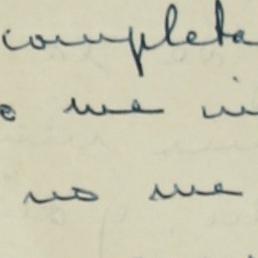 completa
o me in
no me